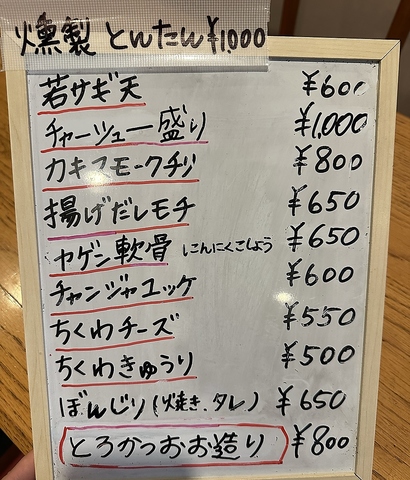 燻製とんたん ¥1,000
若サギ天 ¥600
チャーシュー盛り ¥1,000
カキスモークチリ ¥800
揚げだしモチ ¥650
ヤゲン軟骨 にんにくこしょう ¥650
チャンジャユッケ ¥600
ちくわチーズ ¥550
ちくわきゅうり ¥500
ぼんじり(焼き、タレ) ¥650
とろかつおお造り ¥800